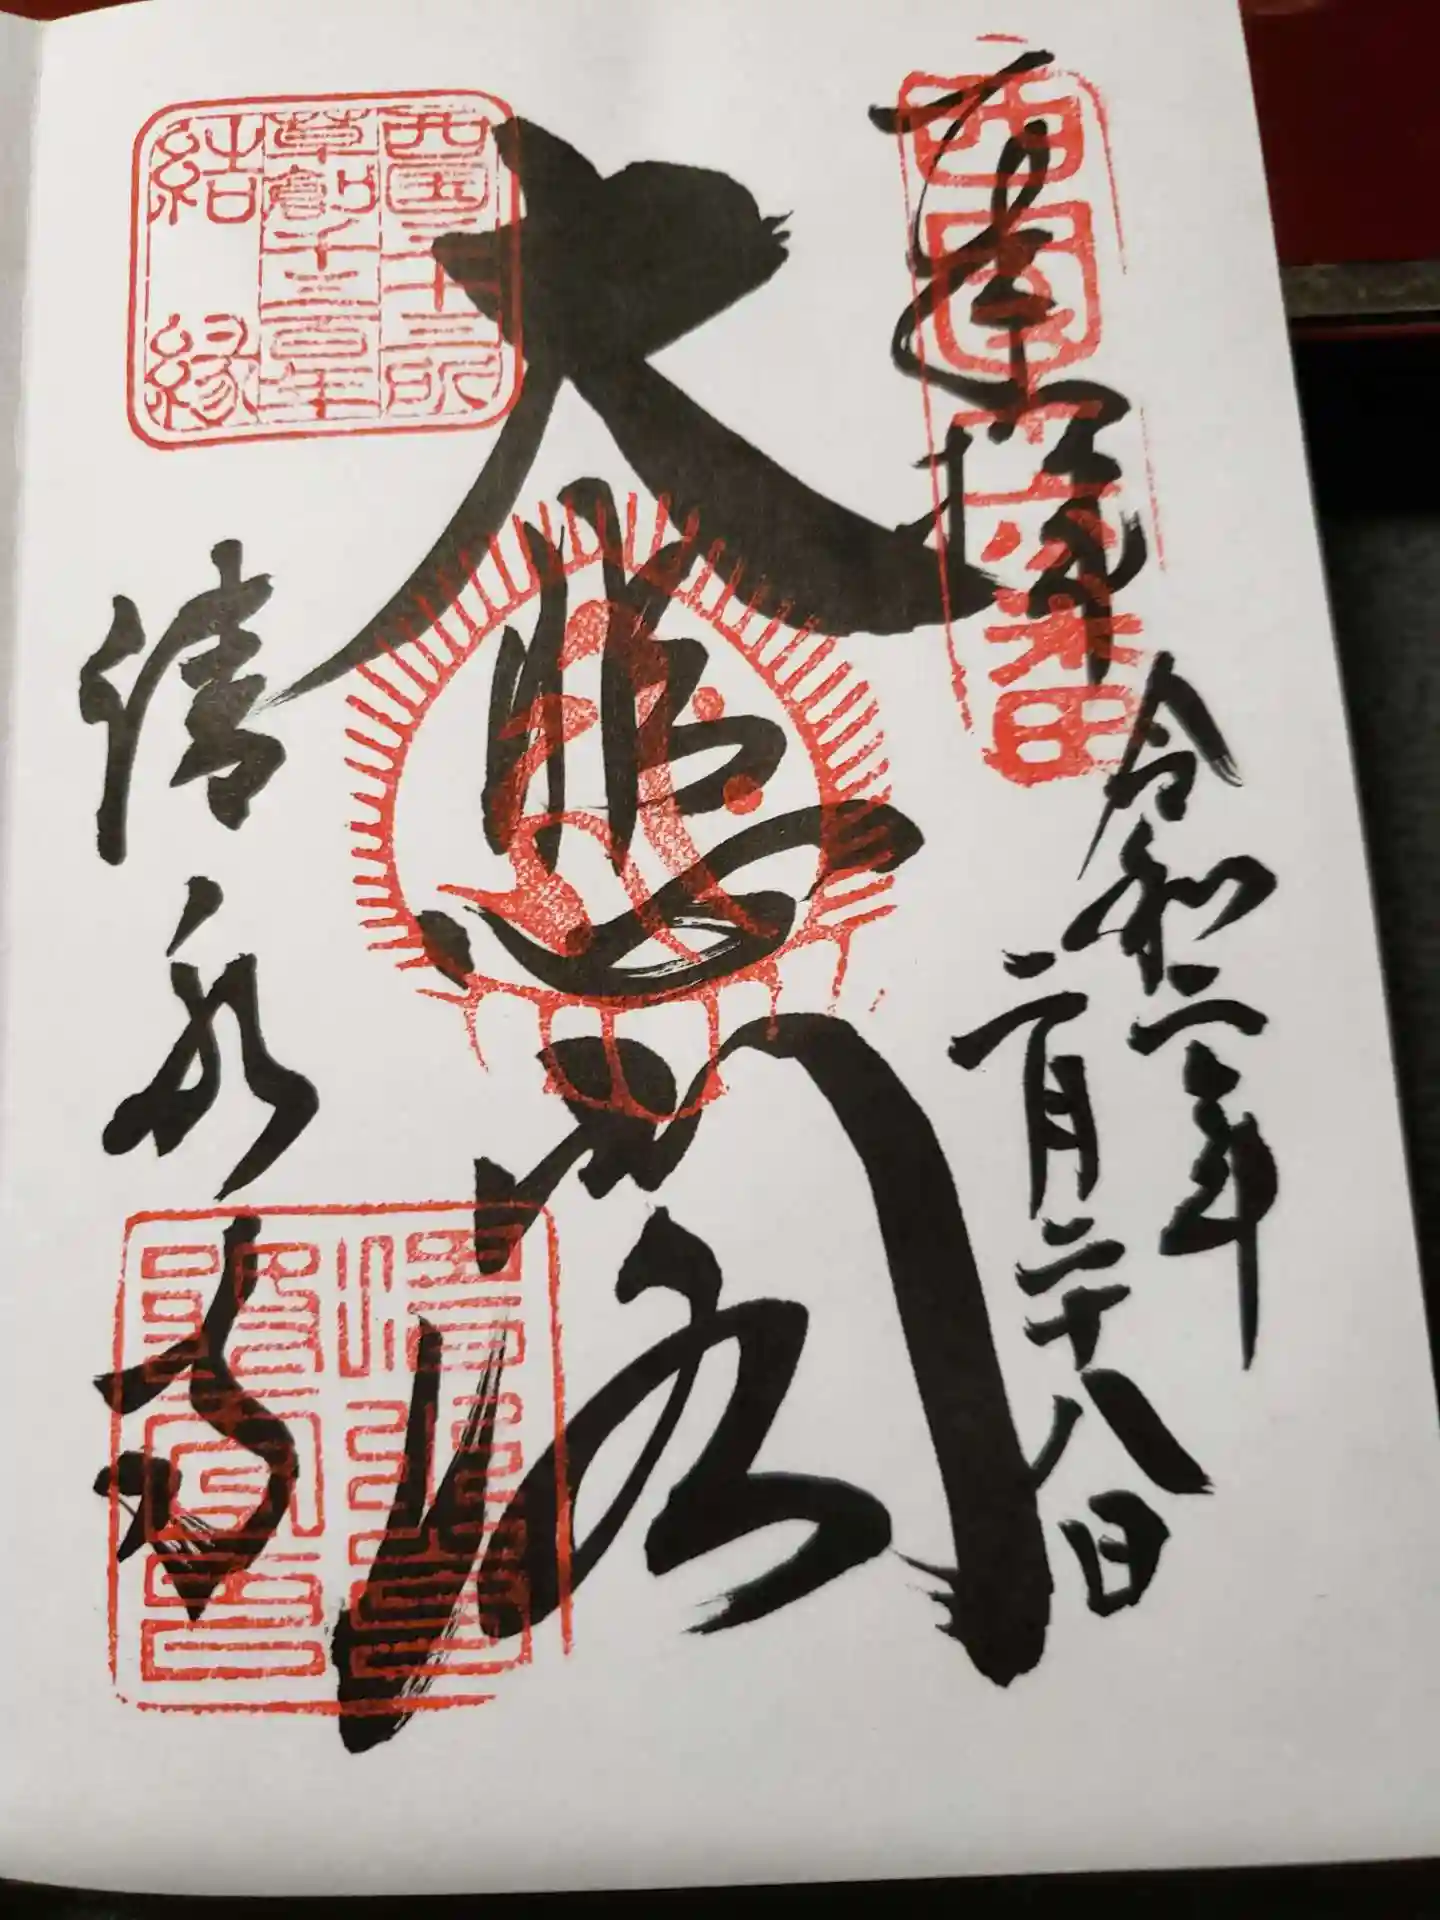 奉拝
西国十六番
令和二年
二月二十八日
大悲閣
西国三十三所
草創千三百年
結縁
清水寺